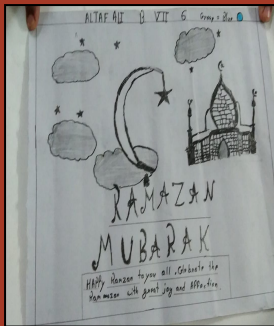 ALTAF ALI B VII S Group = Blue
RAMAZAN
MUBARAK
HAppy Ramzan to you all. Celebrate the
Ramazan with great joy and Affection